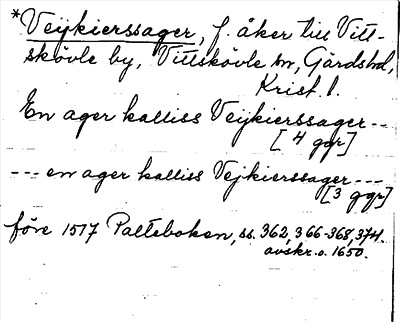 *Vejkierssager, f. åker till Vitt-
skövle by, Vittskövle sn, Gärdshd,
Krist. l.
En ager kalliss Veijkierssager--
[4 ggr]
--- en ager kalliss Vejkierssager---
[3 ggr]
före 1517 Palteboken, ss. 362, 366-368, 374.
avskr. o. 1650.